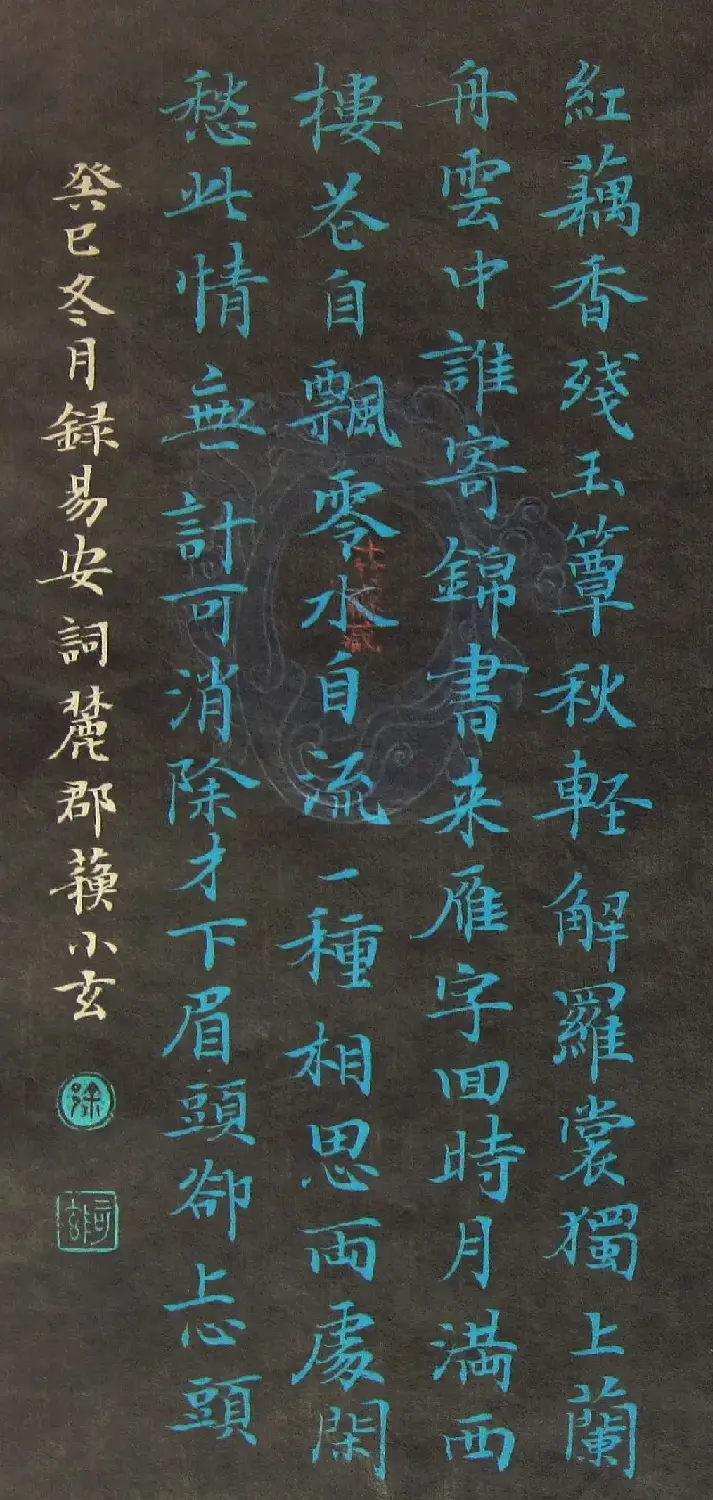 紅藕香残玉簟秋軽解羅裳獨上蘭
舟雲中誰寄錦書来雁字囬時月満西
樓花自飄零水自流一種相思両處閑
愁此情無計可消除才下眉頭卻上心頭
癸巳冬月録易安詞麓郡小玄